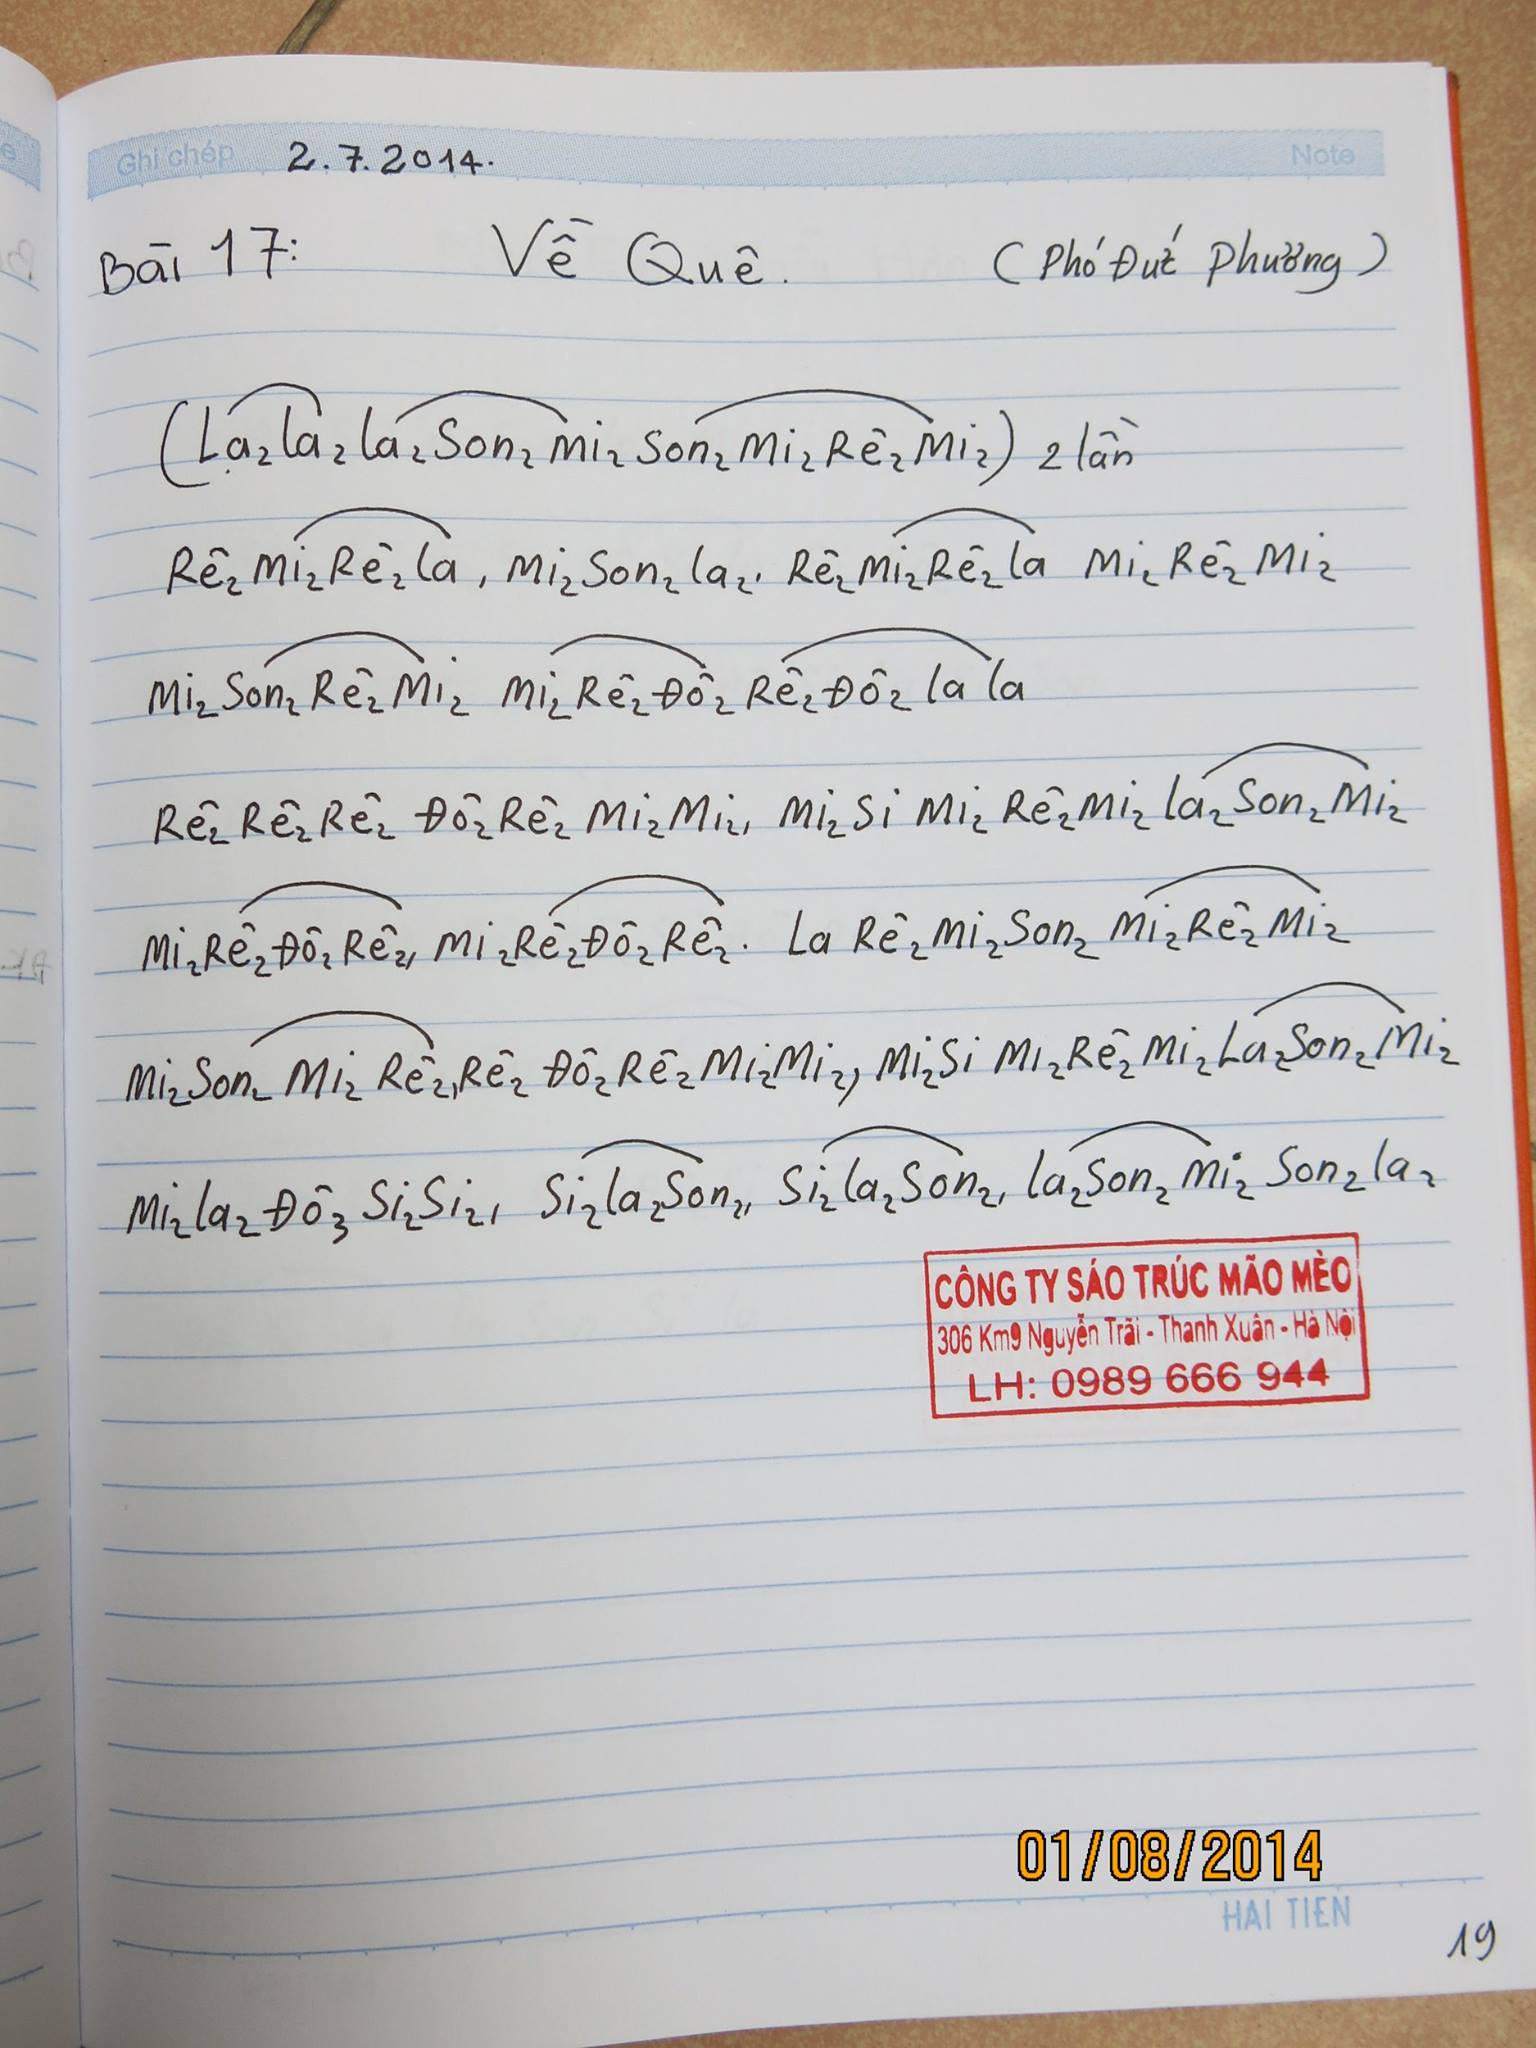 Ghi chép 2.7.2014. Note
Bài 17: Về Quê. (Phó Đức Phương)
(La₂la₂la₂Son₂Mi₂Son₂Mi₂Rê₂Mi₂) 2 lần
Rê₂Mi₂Rê₂la, Mi₂Son₂la₂. Rê₂Mi₂Rê₂la Mi₂Rê₂Mi₂
Mi₂Son₂Rê₂Mi₂ Mi₂Rê₂Đô₂Rê₂Đô₂la la
Rê₂Rê₂Rê₂ Đô₂Rê₂Mi₂Mi₂, Mi₂Si Mi₂Rê₂Mi₂la₂Son₂Mi₂
Mi₂Rê₂Đô₂Rê₂, Mi₂Rê₂Đô₂Rê₂. La Rê₂Mi₂Son₂ Mi₂Rê₂Mi₂
Mi₂Son₂ Mi₂Rê₂,Rê₂ Đô₂Rê₂Mi₂Mi₂, Mi₂Si Mi₂Rê₂Mi₂La₂Son₂Mi₂
Mi₂la₂Đô₃Si₂Si₂, Si₂la₂Son₂, Si₂la₂Son₂, la₂Son₂Mi₂ Son₂la₂
CÔNG TY SÁO TRÚC MÃO MÈO
306 Km9 Nguyễn Trãi - Thanh Xuân - Hà Nội
LH: 0989 666 944
01/08/2014
HẢI TIẾN
19